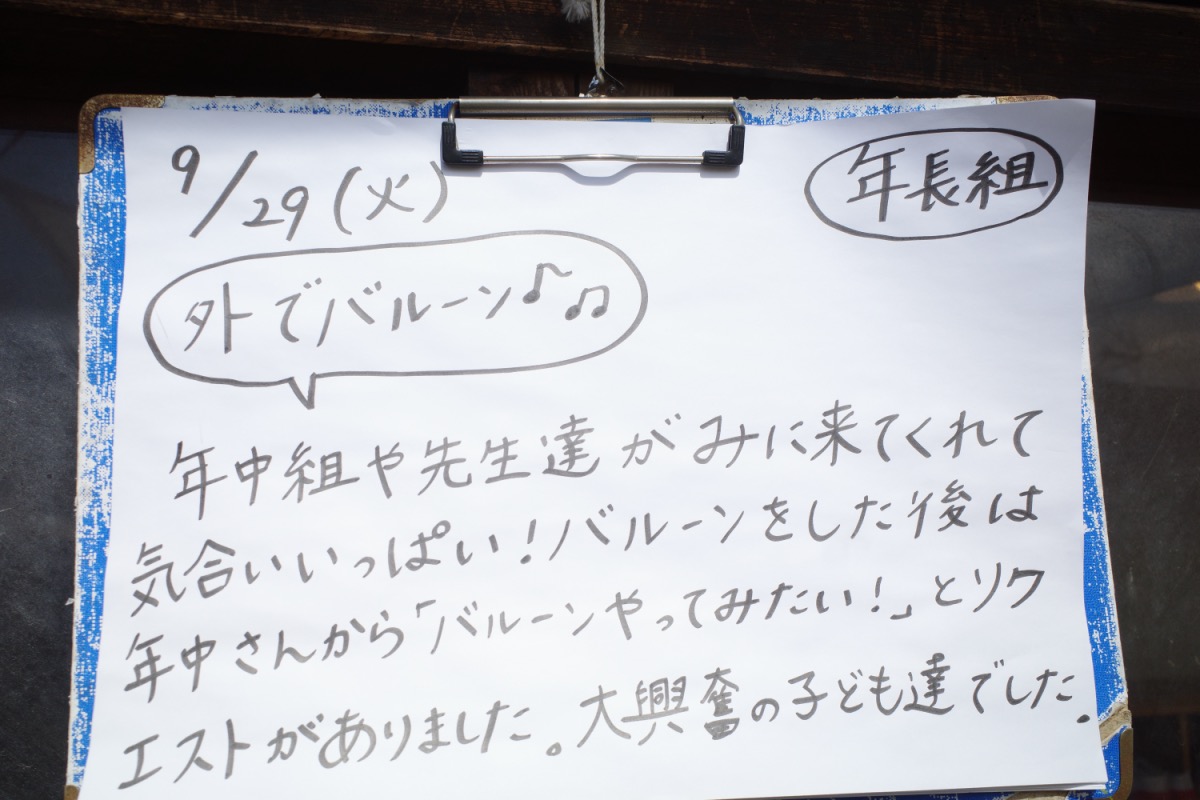 9/29(火)
年長組
外でバルーン♪♫
年中組や先生達がみに来てくれて
気合いいっぱい!バルーンをした後は
年中さんから「バルーンやってみたい!」とリク
エストがありました。大興奮の子ども達でした.